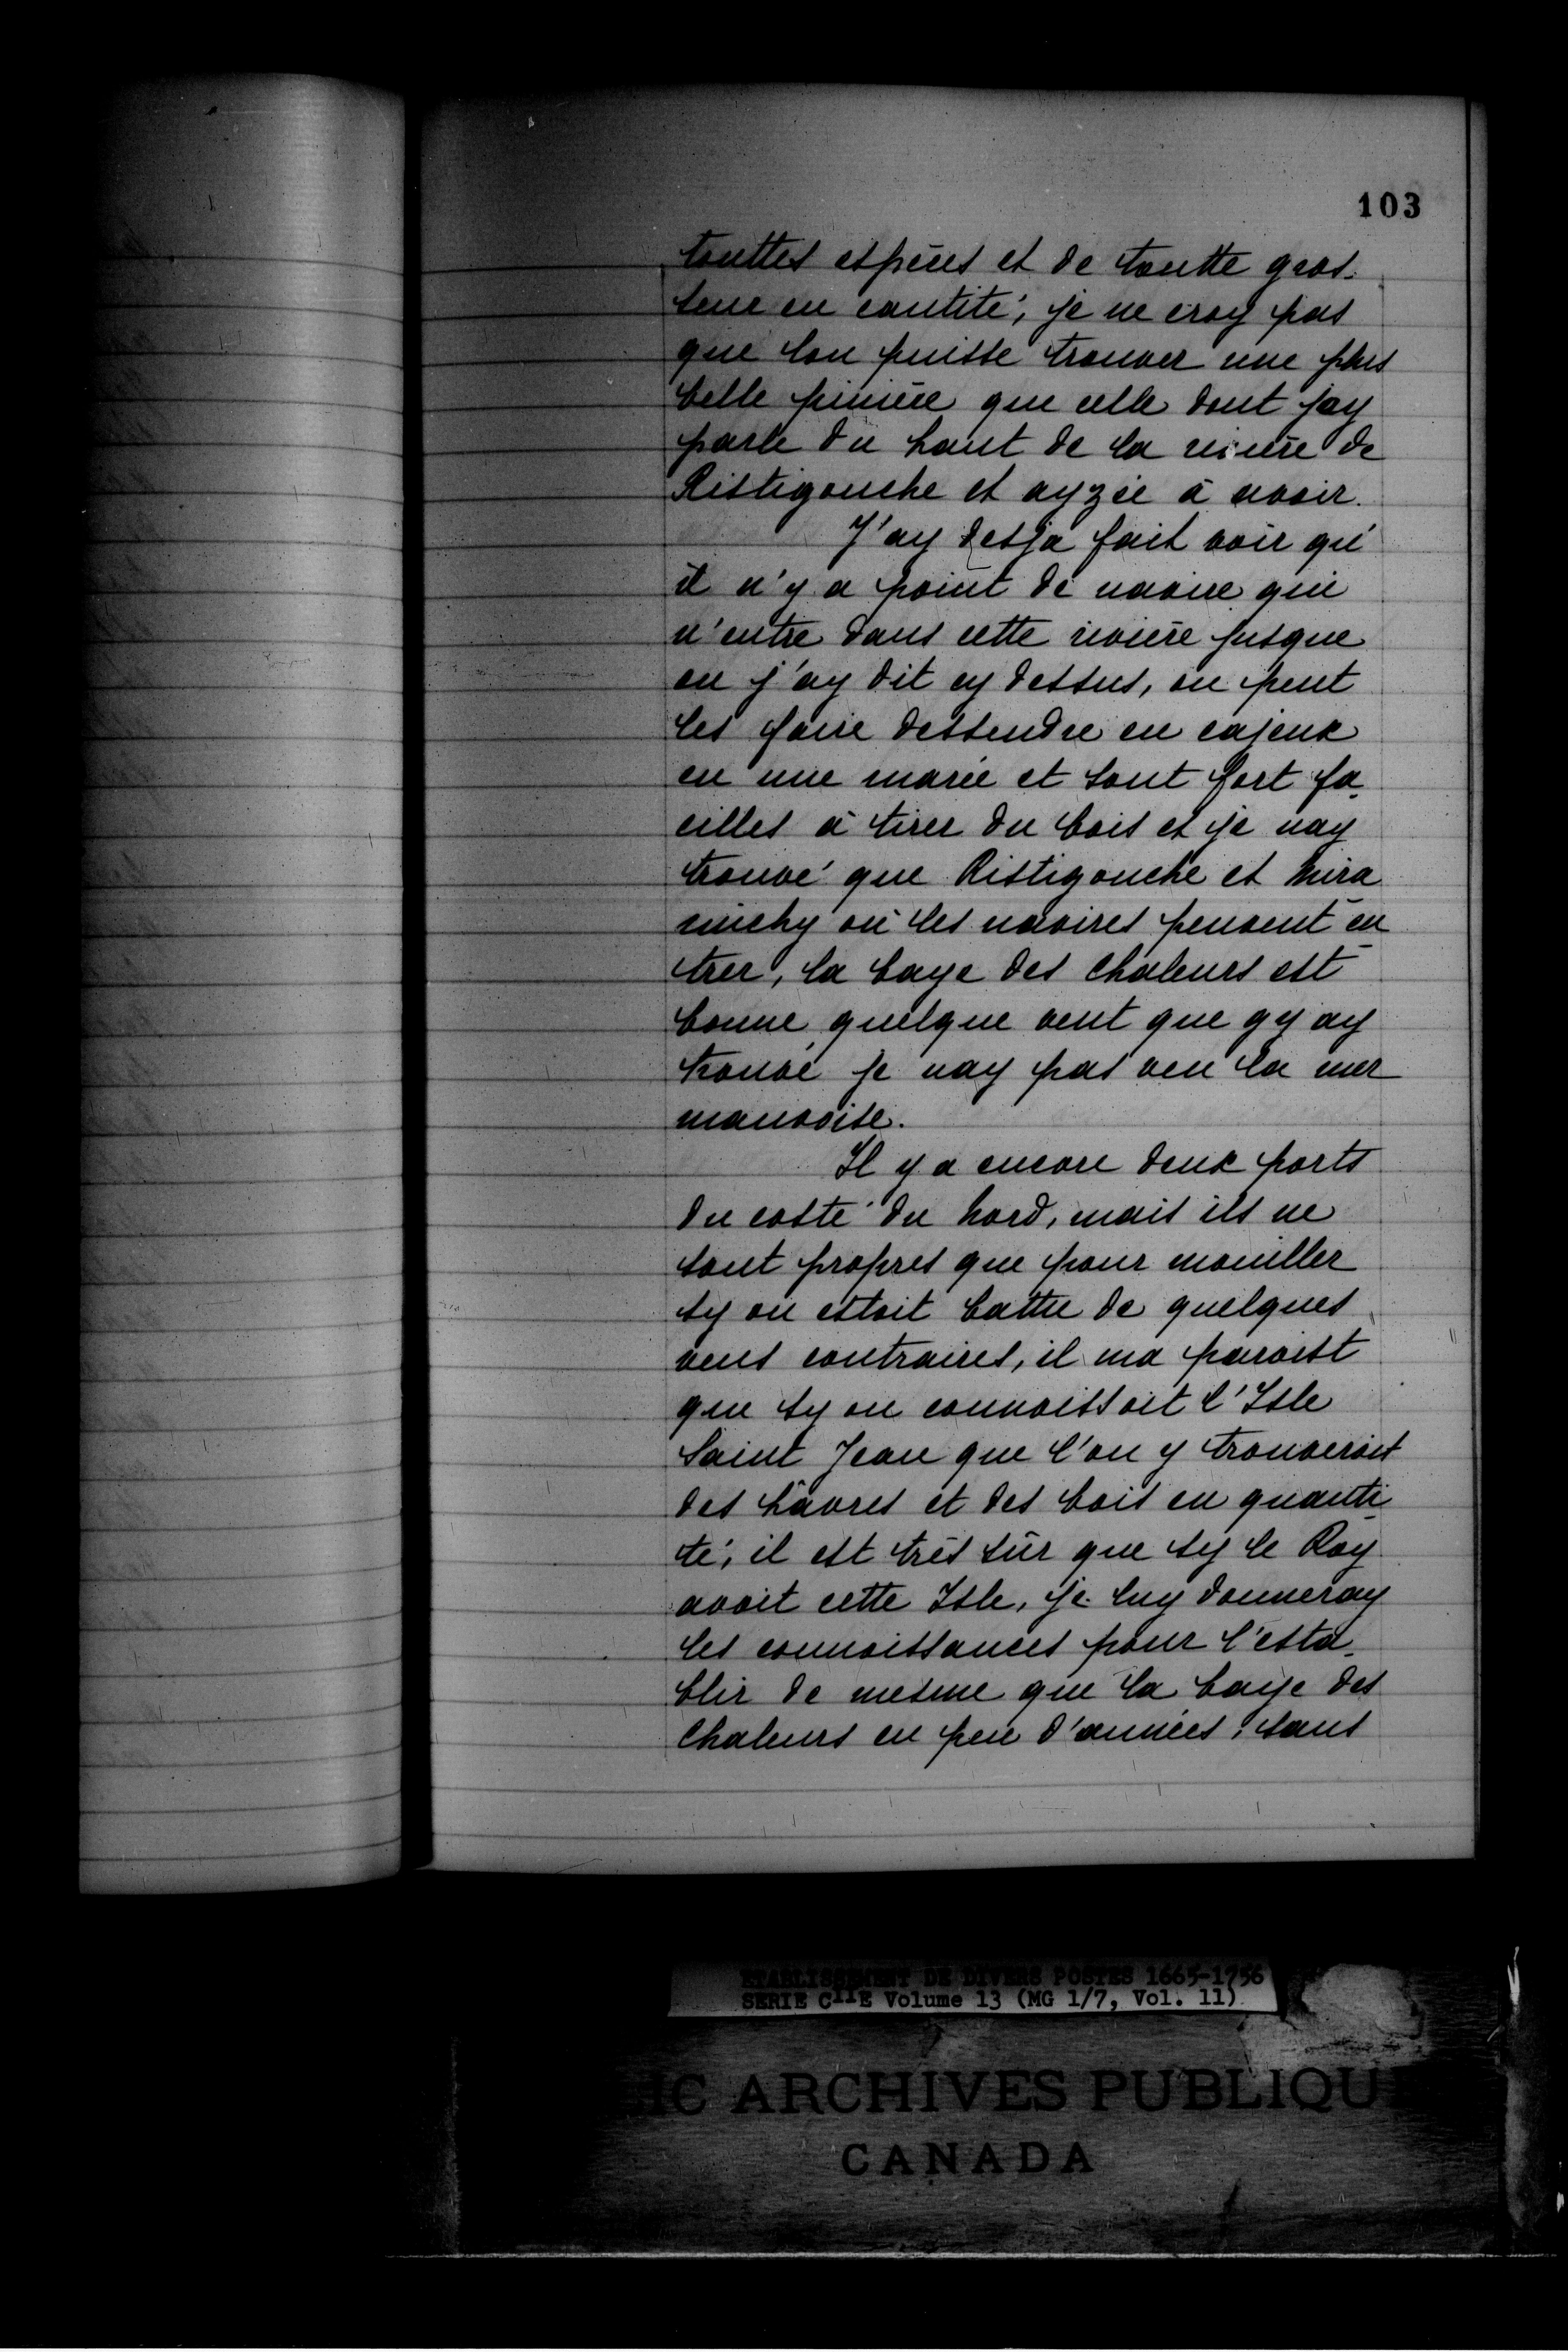 103
touttes espèces et de toutte gros-
seur en cantité, je ne croy pas
que lon puisse trouver une plus
belle pinière que celle dont jay
parle du haut de la rivière de
Ristigouche et ayzée à avoir.
J'ay desja fait voir qu'
il n'y a point de navire qui
n'entre dans cette rivière jusque
ou j'ay dit cy dessus, on peut
les faire dessendre en cajeux
en une marée et sont fort fa-
cilles à tirer du bois et je nay
trouvé que Ristigouche et Mira
michy où les navires peuvent en
trer, la baye des Chaleurs est
bonne, quelque vent que gy ay
trouvé je nay pas veu la mer
mauvaise.
Il y a encore deux ports
du costé du Nord, mais ils ne
sont propres que pour mouiller
sy on estoit battu de quelques
vens contraires, il ma paroist
que sy on connoissoit l'Isle
Saint Jean que l'on y trouveroit
des hâvres et des bois en quanti-
té, il est très sûr que sy le Roy
avoit cette Isle, je luy donneray
les connoissances pour l'esta-
blir de mesme que la baye des
Chaleurs en peu d'années, sans
ETABLISSEMENT DE DIVERS POSTES 1665-1756
SERIE C11E Volume 13 (MG 1/7, Vol. 11)
IC ARCHIVES PUBLIQU
CANADA